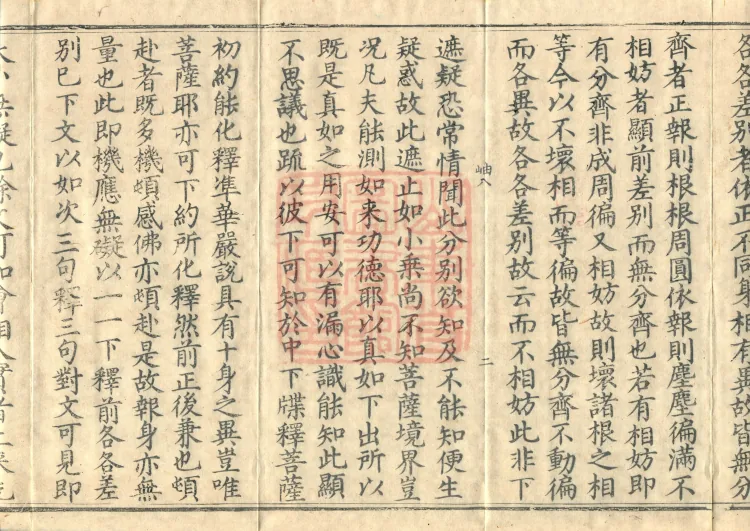 各各差別者依正不同臭相有異故皆無分
齊者正報則根根周圓依報則塵塵徧滿不
相妨者顯前差別而無分齊也若有相妨即
有分齊非成周徧又相妨故則壞諸根之相
等今以不壞相而等徧故皆無分齊不動徧
而各異故各各差別故云而不相妨此非下
岫八
二
遮疑恐常情聞此分別欲知及不能知便生
疑惑故此遮止如小乗尚不知菩薩境界豈
况凡夫能測如来功德耶以真如下出所以
既是真如之用安可以有漏心識能知此顯
不思議也䟽以彼下可知於中下牒釋菩薩
初約能化釋準華嚴說具有十身之異豈唯
菩薩耶亦可下約所化釋然前正後兼也頓
赴者既多機頓感佛亦頓赴是故報身亦無
量也此即機應無礙以一一下釋前各各差
别巳下文以如次三句釋三句對文可見即